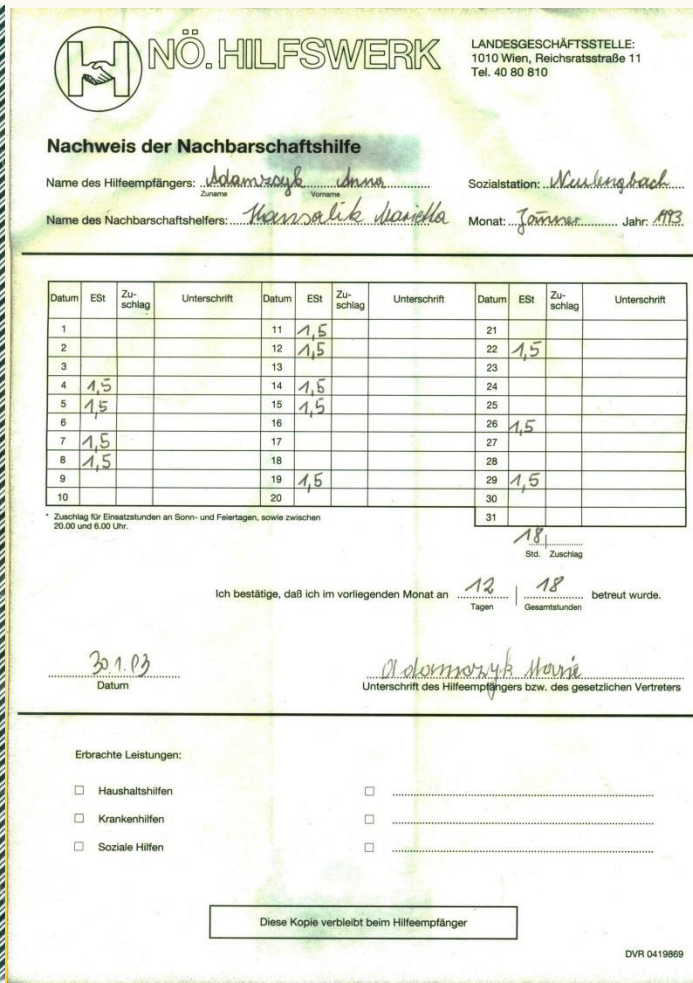 NÖ. HILFSWERK
LANDESGESCHÄFTSSTELLE:
1010 Wien, Reichsratsstraße 11
Tel. 40 80 810
Nachweis der Nachbarschaftshilfe
Name des Hilfeempfängers: Adamrzyk Anna Sozialstation: Neulengbach
Zuname Vorname
Name des Nachbarschaftshelfers: Marietta Monat: Jänner Jahr: 1993
Datum ESt Zu-schlag Unterschrift Datum ESt Zu-schlag Unterschrift Datum ESt Zu-schlag Unterschrift
1 11 1,5 21
2 12 1,5 22 1,5
3 13 23
4 1,5 14 1,5 24
5 1,5 15 1,5 25
6 16 26 1,5
7 1,5 17 27
8 1,5 18 28
9 19 1,5 29 1,5
10 20 30
* Zuschlag für Einsatzstunden an Sonn- und Feiertagen, sowie zwischen 31
20.00 und 6.00 Uhr.
18
Std. Zuschlag
Ich bestätige, daß ich im vorliegenden Monat an 12 18 betreut wurde.
Tagen Gesamtstunden
30.1.93 Marie
Datum Unterschrift des Hilfeempfängers bzw. des gesetzlichen Vertreters
Erbrachte Leistungen:
Haushaltshilfen
Krankenhilfen
Soziale Hilfen
Diese Kopie verbleibt beim Hilfeempfänger
DVR 0419869